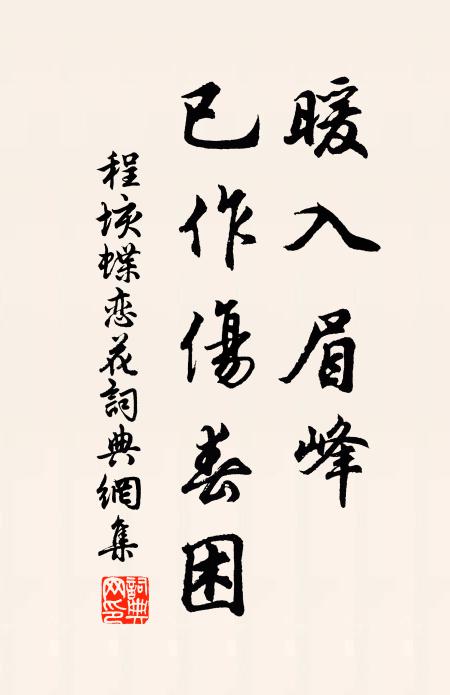 暖入眉峰
已作傷春困
程垓蝶恋花詞典網集
詞典
網印